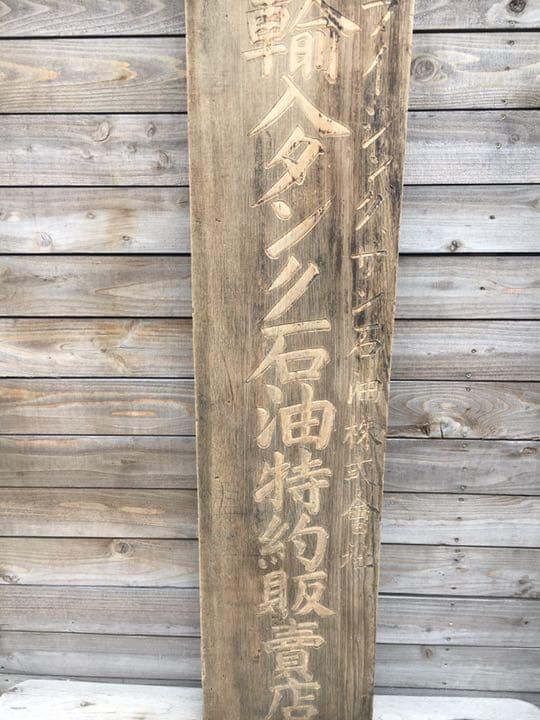 アイシングサン石油株式會社
輸入タンク石油特約販賣店